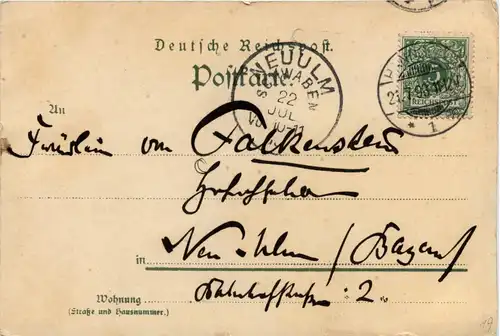 Deutsche Reichspost.
Postkarte.
NEUULM
SCHWABEN
22
JUL
REICHSPOST
* 1
An
Fräulein von Falkenstein
in Neu-Ulm / Bayern
Wohnung
Bahnhofstrasse 2.
(Straße und Hausnummer.)